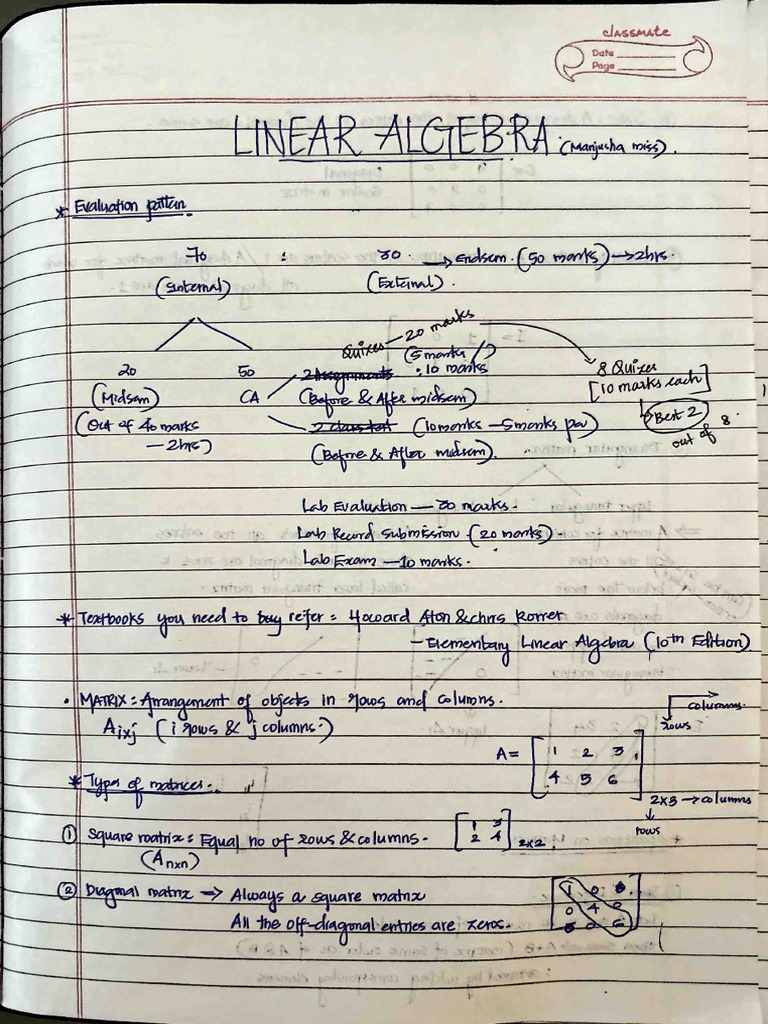 classmate
Date
Page
LINEAR ALGEBRA (Manjusha miss).
* Evaluation pattan.
70 : 30 → Endsem. (50 marks) → 2hrs.
(Internal) (External).
Quizes — 20 marks
(5 marks /)
20 50 2 Assignments . 10 marks 8 Quizes
(Midsem) CA (Before & After midsem) [10 marks each]
(Out of 40 marks 2 class test (10 marks — 5 marks per) Best 2
— 2hrs) (Before & After midsem). out of 8.
Lab Evaluation — 30 marks.
Lab Record Submission (20 marks)
Lab Exam — 10 marks.
* Textbooks you need to buy refer = Howard Aton & chris Rorrer
— Elementary Linear Algebra (10th Edition)
• MATRIX : Arrangement of objects in rows and columns. columns.
Aixj (i rows & j columns.) rows
A = [ 1 2 3
4 5 6 ] 2x3 → columns
* Types of matrices :. rows
① Square matrix : Equal no of rows & columns. [ 1 3
(Anxn) 2 4 ] 2x2
② Diagonal matrix ⇒ Always a square matrix [ 1 0 0
All the off-diagonal entries are zeros. 0 4 0
0 0 6 ]